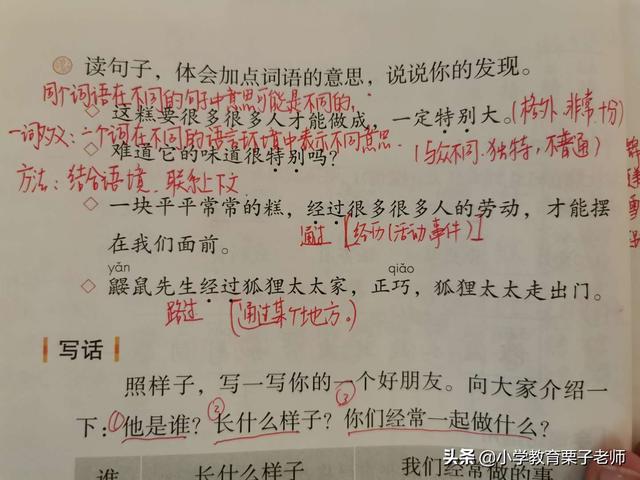 读句子，体会加点词语的意思，说说你的发现。
同个词语在不同的句子中意思可能是不同的。
◇ 这糕要很多很多人才能做成，一定特别大。(格外 非常 十分)
一词多义：一个词在不同的语言环境中表示不同意思.
◇ 难道它的味道很特别吗？(与众不同.独特，不普通)
方法：结合语境.联系上下文
◇ 一块平平常常的糕，经过很多很多人的劳动，才能摆
在我们面前。 通过 [经历(活动事件)]
yǎn qiǎo
◇ 鼹鼠先生经过狐狸太太家，正巧，狐狸太太走出门。
路过 (通过某个地方。)
写话
照样子，写一写你的一个好朋友。向大家介绍一
下：①他是谁？②长什么样子？③你们经常一起做什么？
谁 长什么样子 我们经常做的事
头条 @小学教育栗子老师